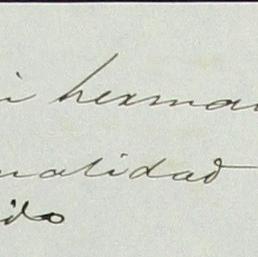 i herma
nalidad
ido